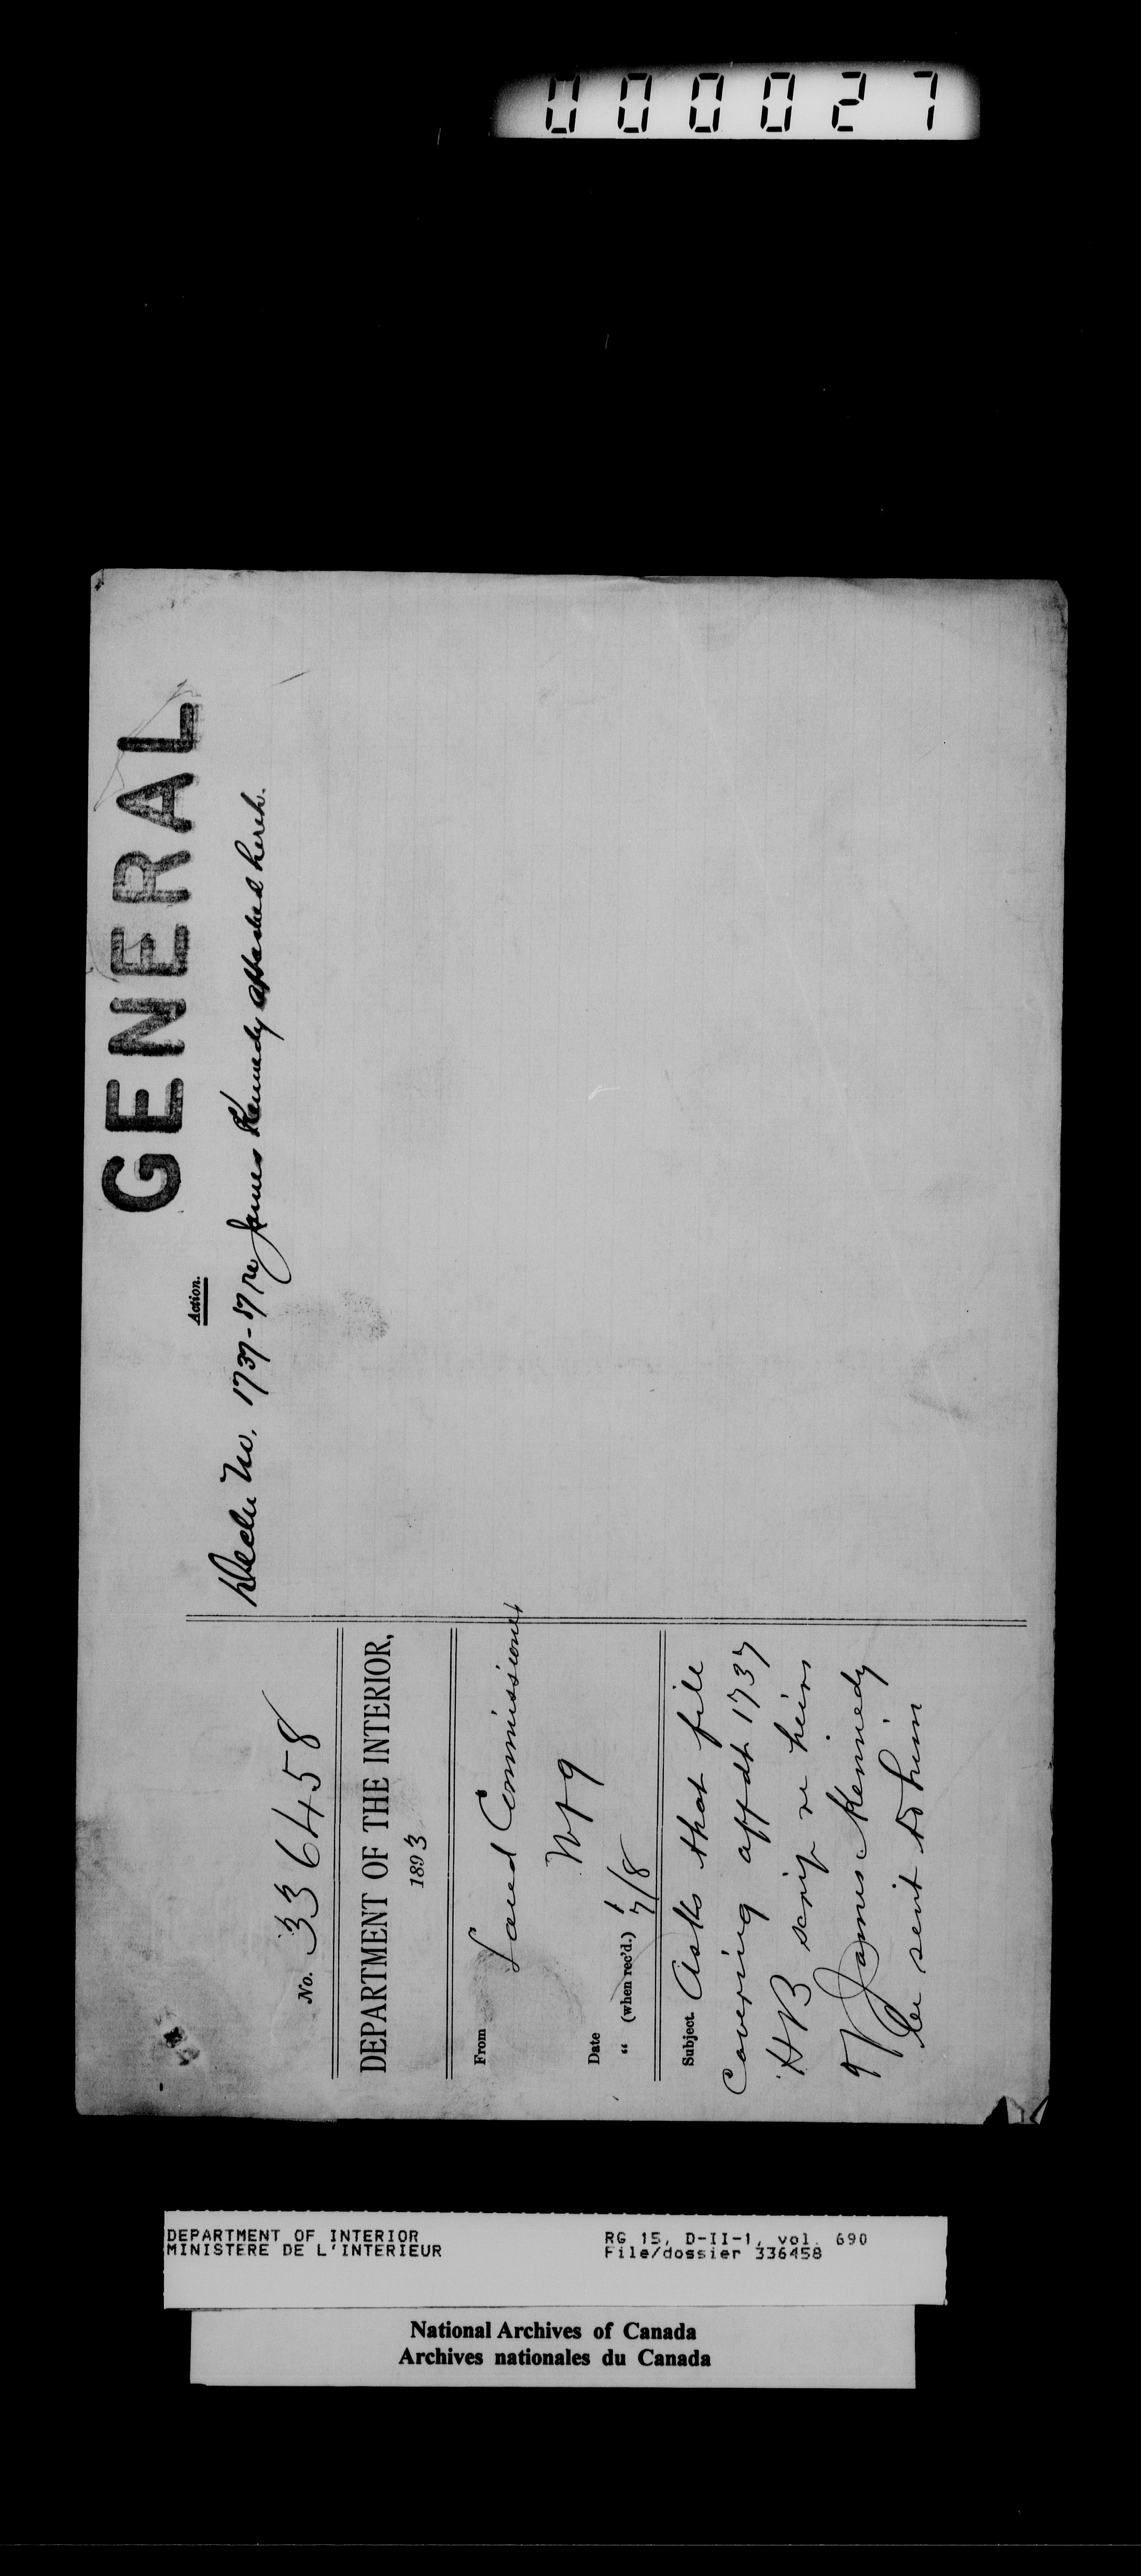 000027
GENERAL
Action.
No. 1737-87 re James Kennedy attached herewh.
No. 336458
DEPARTMENT OF THE INTERIOR,
1893
From Land Commissioner
Wpg
Date
" (when rec'd.) 1/7/8
Subject. Asks that file
Covering affdt 1737
HB scrip re heirs
of James Kennedy
be sent to him
DEPARTMENT OF INTERIOR
MINISTERE DE L'INTERIEUR
RG 15, D-II-1, vol. 690
File/dossier 336458
National Archives of Canada
Archives nationales du Canada